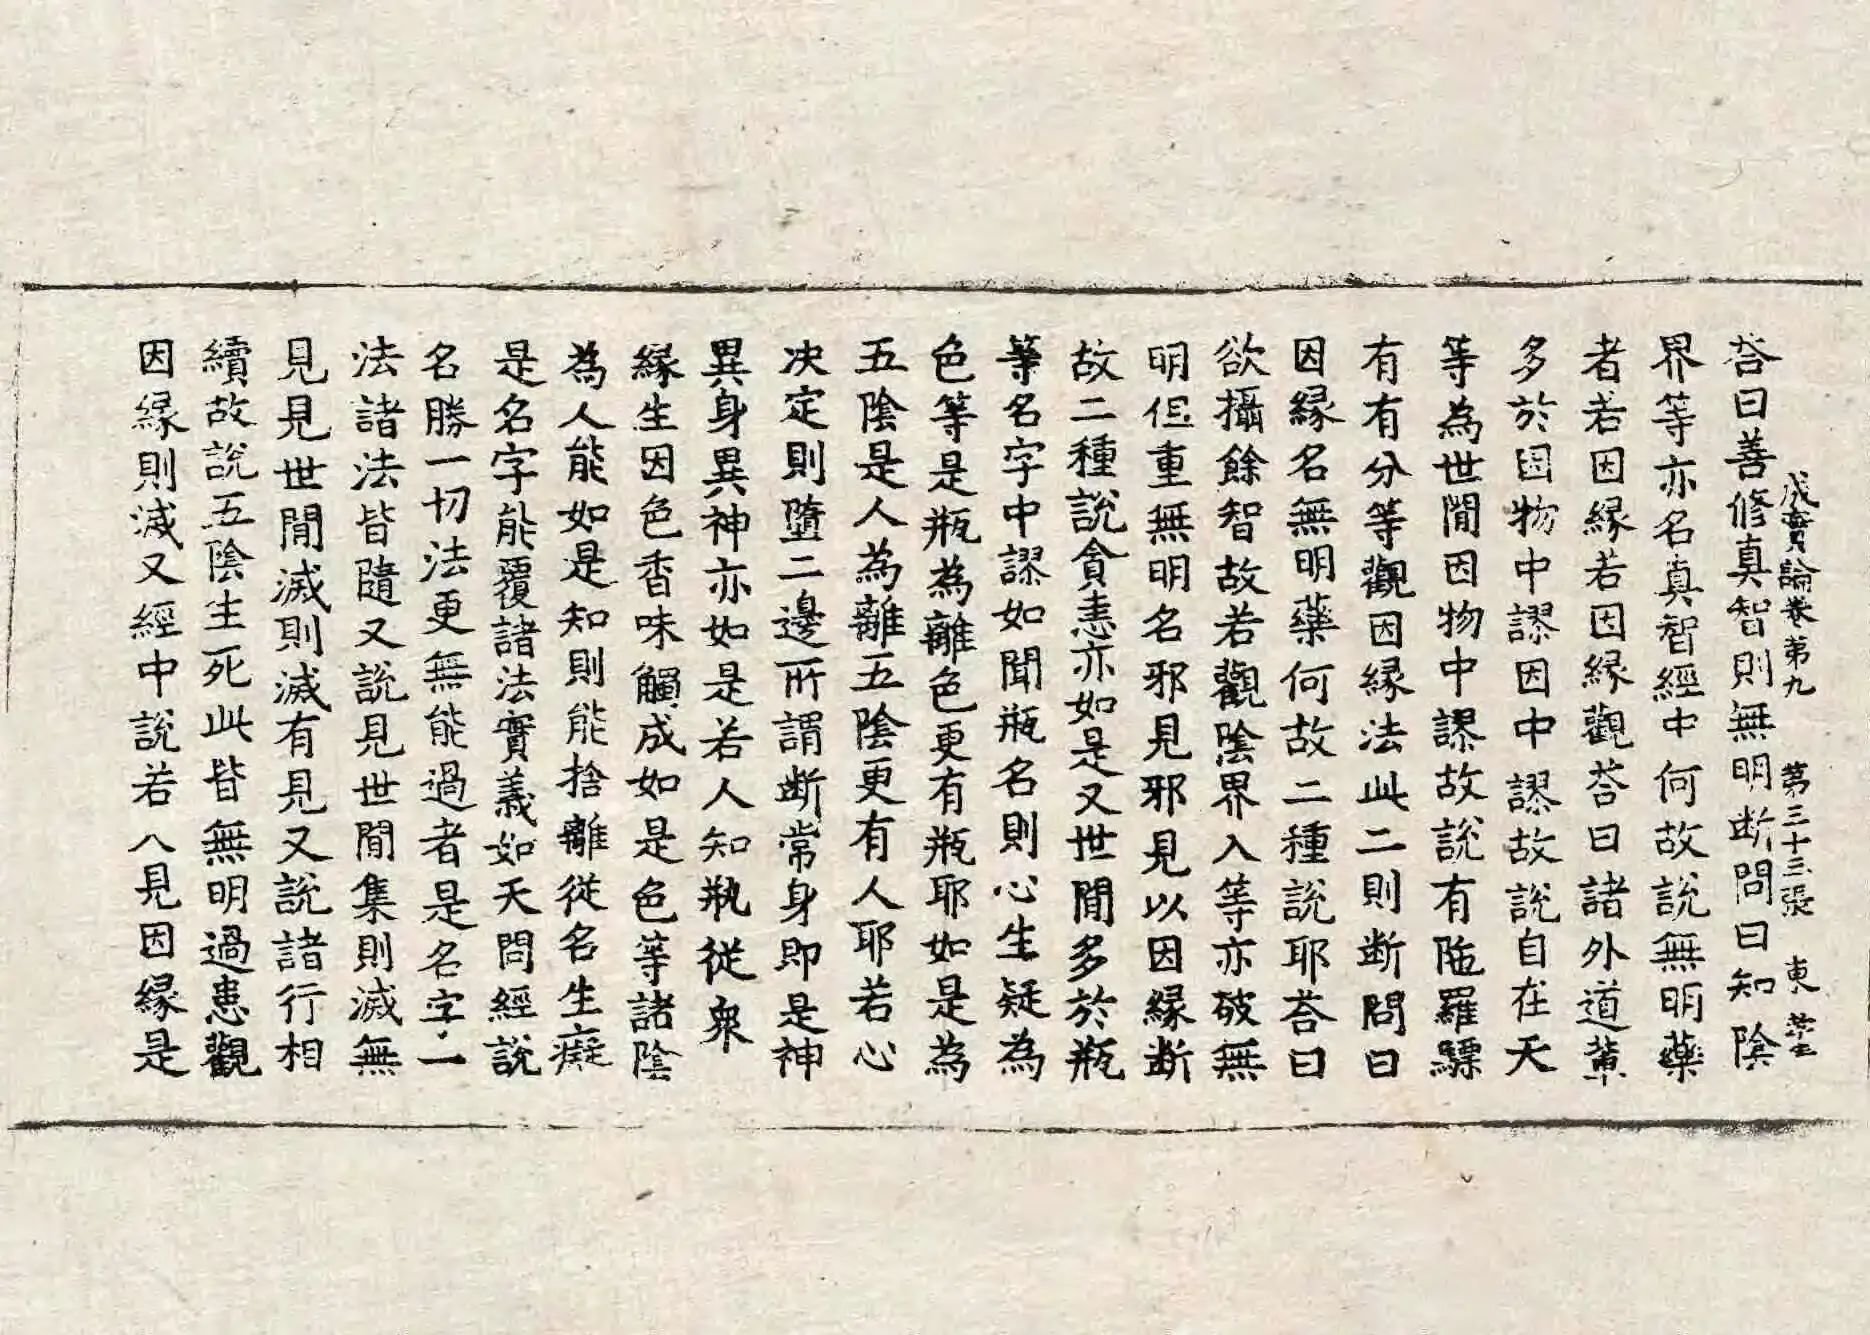 成實論卷第九　第三十三張　東
荅曰善修真智則無明断問曰知陰
界等亦名真智經中何故說無明藥
者若因緣若因緣觀荅曰諸外道輩
多於因物中謬因中謬故說自在天
等為世閒因物中謬故說有陁羅驃
有有分等觀因緣法此二則断問曰
因緣名無明藥何故二種說耶荅曰
欲攝餘智故若觀陰界入等亦破無
明但重無明名邪見邪見以因緣断
故二種說貪恚亦如是又世閒多於瓶
等名字中謬如聞瓶名則心生疑為
色等是瓶為離色更有瓶耶如是為
五陰是人為離五陰更有人耶若心
决定則墮二邊所謂断常身即是神
異身異神亦如是若人知瓶從衆
緣生因色香味觸成如是色等諸陰
為人能如是知則能捨離從名生癡
是名字能覆諸法實義如天問經說
名勝一切法更無能過者是名字一
法諸法皆隨又說見世閒集則滅無
見見世閒滅則滅有見又說諸行相
續故說五陰生死此皆無明過患觀
因緣則滅又經中說若人見因緣是